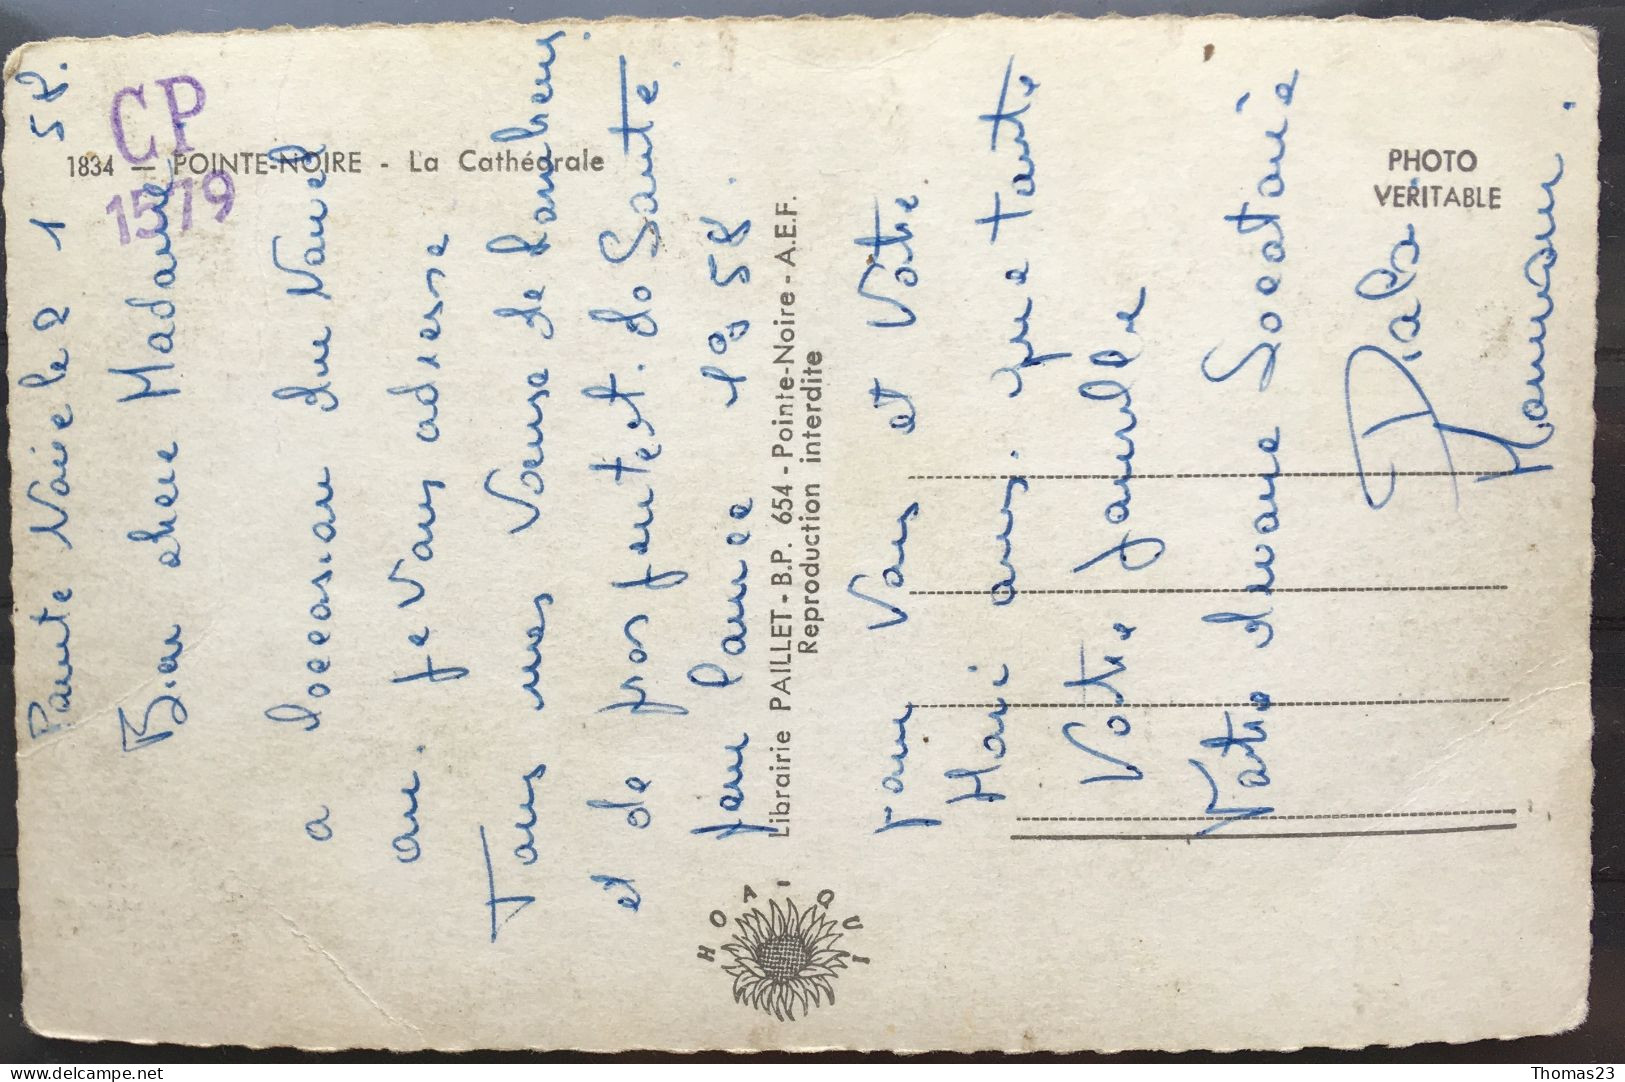 1834 — POINTE-NOIRE - La Cathédrale
CP
1579
PHOTO
VERITABLE
Librairie PAILLET - B.P. 654 - Pointe-Noire - A.E.F.
Reproduction interdite
HOA-QUI
Pointe Noire le 2 1 58.
Bien chere Madame
a loccasion du Nouvel
an. je Vous adresse
Tous mes Voeuse de bonheur
et de prosperitert. do Sante
pour lannee 1958.
pour Vous et Votre
Mari ainsi. que toute
Votre famille
Votre devoue Socetaire
Diabo
Mamson.
delcampe.net
Thomas23